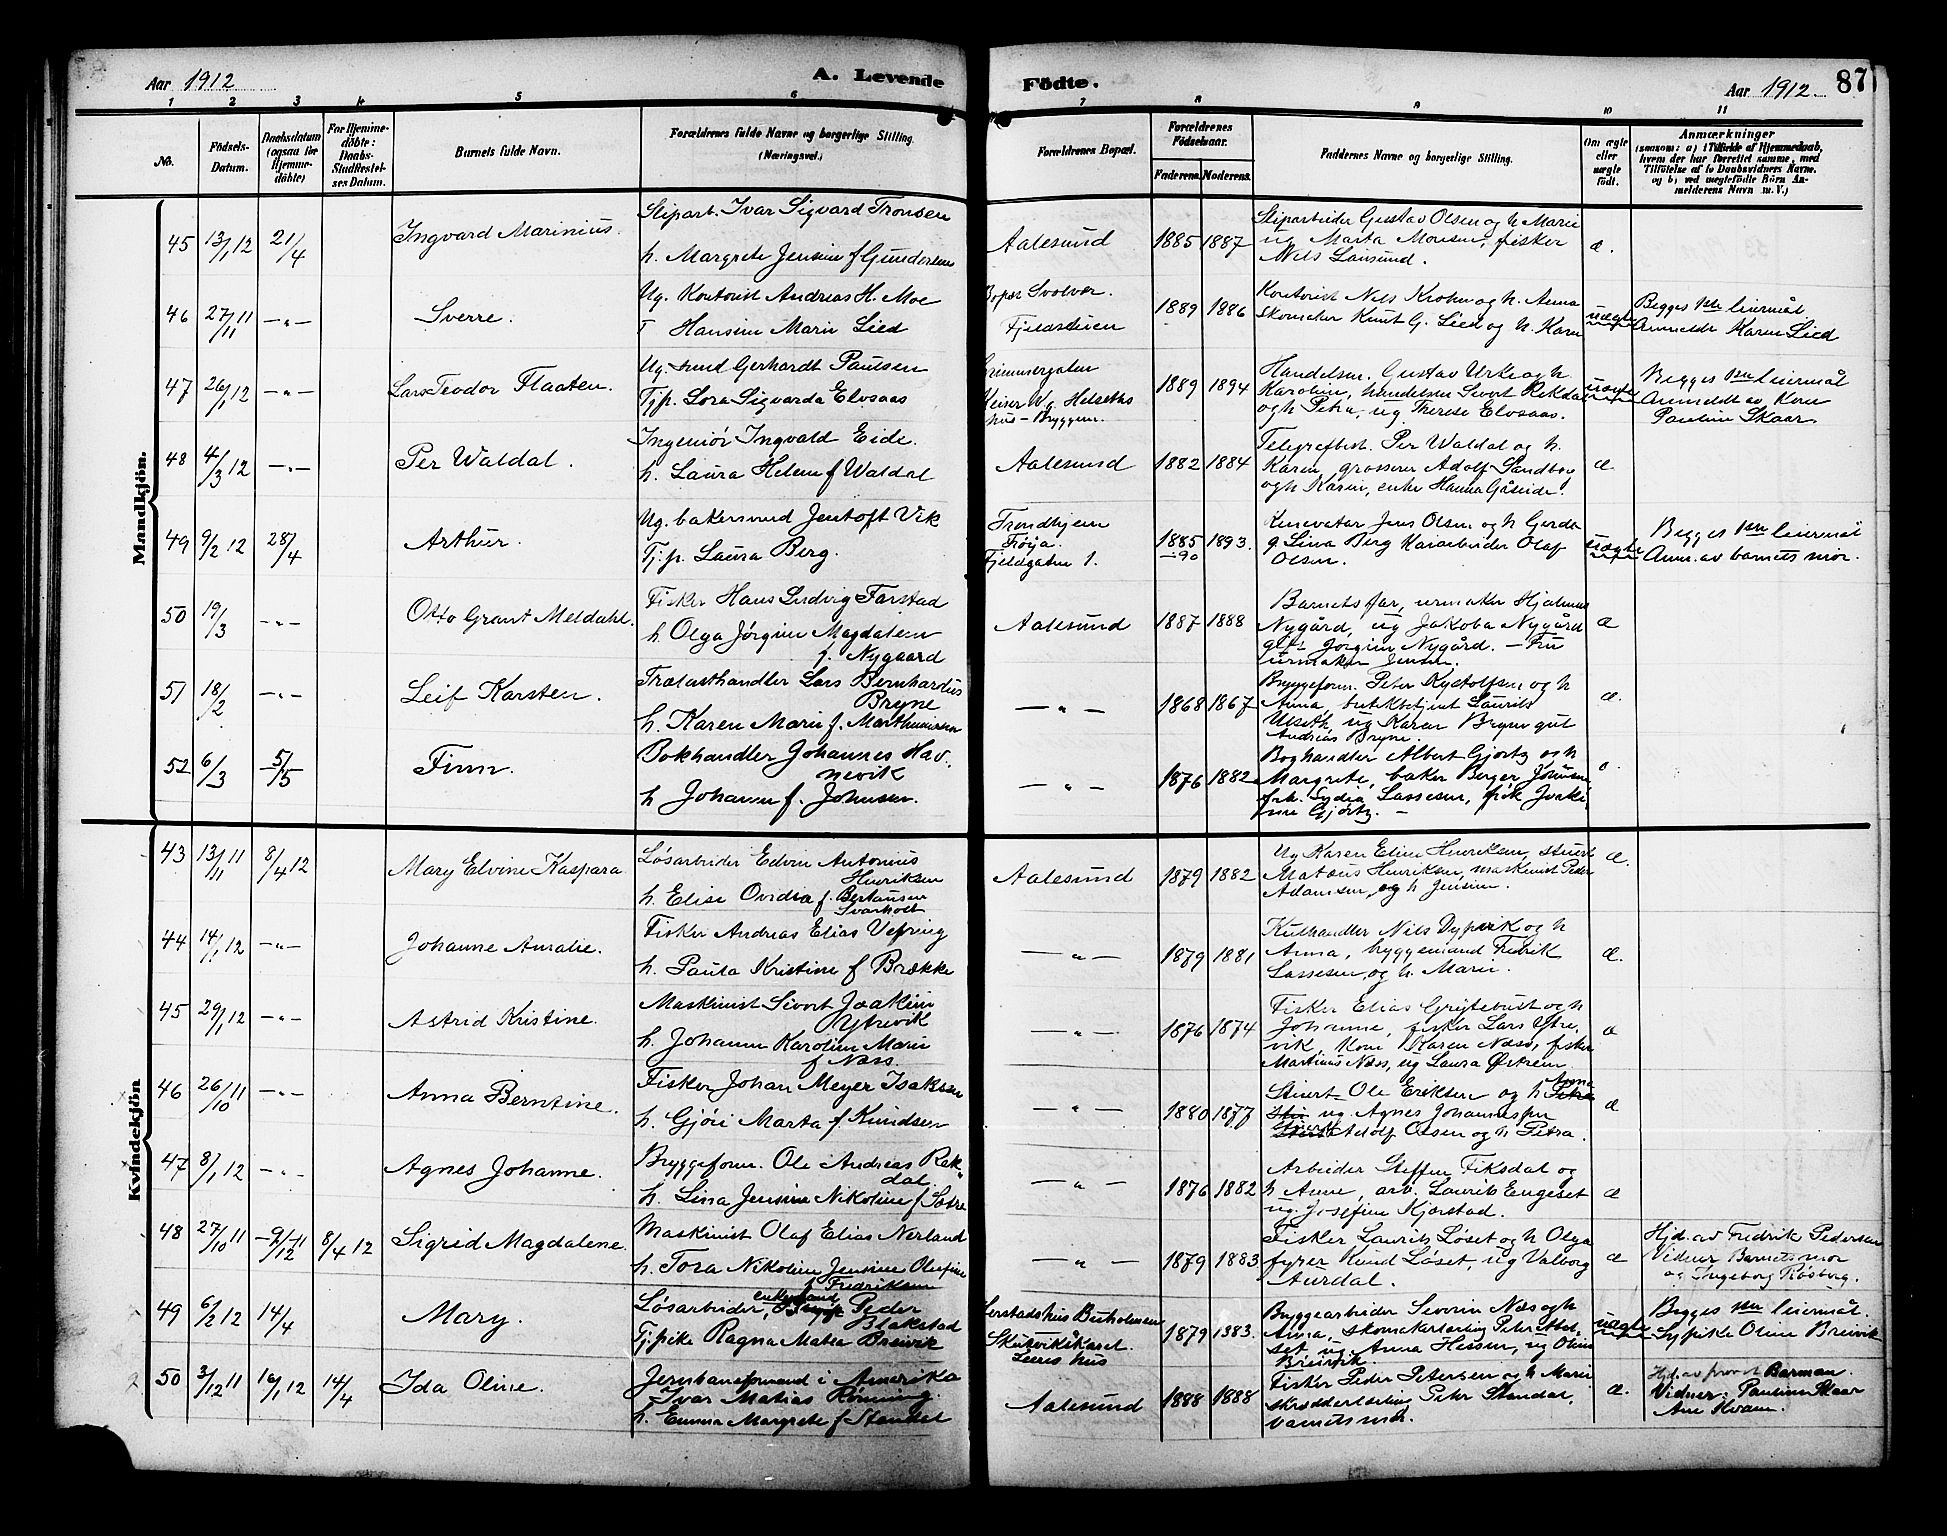 Aar 1912
A. Levende
Födte.
Aar 1912.
87
1 2 3 4 5 6 7 8 9 10 11
No.
Födsels-
Datum.
Daabsdatum
(ogsaa for
Hjemme-
döbte)
For Hjemme-
döbte:
Daabs-
Stadfæstel-
ses Datum.
Barnets fulde Navn.
Forældrenes fulde Navne og borgerlige Stilling.
(Næringsvei.)
Forældrenes Bopæl.
Forældrenes
Födselsaar.
Faderens. Moderens.
Faddernes Navne og borgerlige Stilling.
Om ægte
eller
uægte
født.
Anmærkninger
(saasom: a) i Tilfælde af Hjemmedaab,
hvem der har forrettet samme, med
Tilföielse af to Daabsvidners Navne.
og b) ved uægtefødte Börn An-
melderens Navn m. V.)
Mandkjön.
45 13/1 12 21/4 Ingvard Marinius.
Sliparb. Ivar Sigvard Tronsen
h. Margrete Jensine f Gundersen
Aalesund 1885 1887
Sliparbeider Gustav Olsen og h. Marie
ug Marta Monsen, fisker
Nils Lansund.
æ.
46 27/11 11 -"- Sverre.
Ug. Kontorist Andreas H. Moe
Hansine Marie Lied
Bopæl Svolvær.
1889 1886
Kontorist Nils Krohn og h. Anna
Skomaker Knut G. Lied og h. Karen
uægte
Begges 1ste leiermål
Anmeldt Karen Lied
47 26/1 12 -"- Lars Teodor Flaaten.
Gerhardt Paulsen
Tjp. Lora Sigvarda Elvsaas
Grimmergaten
hus - Bryggen.
1889 1894
Handelsm. Gustav Urke og h.
Karoline, handelsm Sivert Rekdal
og h Petra, ug Therese Elvsaas.
uægte
Begges 1ste leiermål
Anmeldt av Kone
Pauline Skaar
48 4/3 12 -"- Per Waldal.
Ingeniør Ingvald Eide.
h. Laura Helene f Waldal
Aalesund 1882 1884
Telegrafbest. Per Waldal og h.
Karen, grosserer Adolf Sandboe
og h Karen, enke Hanna Gåseide.
æ
49 9/2 12 28/4 Arthur.
Ug. bakersvend Jentoft Vik
Tj.p. Laura Berg.
Trondhjem
Frøya.
Fjeldgaten 1.
1885 -90 1893.
Jens Olsen og h Gerda
g Lina Berg Olaf
Olsen.
uægte
Begges 1ste leiermål
Anm. av barnets mor.
50 19/3 -"- Otto Grant Meldahl.
Fisker Hans Ludvig Farstad
h Olga Jørgine Magdalene
f. Nygaard
Aalesund 1887 1888
Barnets far, urmaker Hjalmar
Nygård, ug Jakoba Nygård
Jørgine Nygård. - Fru
urmaker Jensen.
æ
51 18/2 -"- Leif Karsten.
Trælasthandler Lars Bernhardus
Bryne
h. Karen Marie f. Marthinussen
-"- 1868 1867
Bryggeform. Peter Rystolfsen og h
Anna, butikbetjent Laurits
Ulseth, ug Karen Bryne gut
Andreas Bryne.
æ.
52 6/3 5/5 Finn.
Bokhandler Johannes Hav-
nevik
h Johanne f. Johnsen.
-"- 1876 1882
Boghandler Albert Gjørtz og h
Margrete, baker Berger Johnsen
frk. Lydia Lassesen, frk Joaki-
mine Gjørtz. -
Kvindekjön
43 13/11 11 8/4 12 Mary Elvine Kaspara
Løsarbeider Edvin Antonius
Henriksen
h. Elise Ovidia f. Berntausen
Svarholt
Aalesund 1879 1882
Ug Karen Eline Henriksen, stuert
Matæus Henriksen, maskinist Peder
Adamsen og h Jensine.
æ.
44 14/1 12 -"- Johanne Amalie.
Fisker Andreas Elias Vefring
h. Paula Kristine f Brække
-"- 1879 1881
Kulhandler Nils Dypvik og h
Anna, bryggemand Fredrik
Lassesen og h. Marie.
æ.
45 29/1 12 -"- Astrid Kristine.
Maskinist Sivert Joakim
Ytrevik
h. Johanne Karoline Marie
f Næss
-"- 1876 1874
Fisker Elias Grytebust og h
Johanne, fisker Lars Ytre-
vik, Kone Karen Næss, fisker
Martinus Næss, ug Laura Østrem
æ
46 26/10 11 -"- Anna Berntine.
Fisker Johan Meyer Isaksen
h. Gjøri Marta f Knudsen
-"- 1880 1877
Stuert Ole Eriksen og h Anna
ug Agnes Johannessen
Stuert Adolf Olsen og h Petra.
æ
47 8/1 12 -"- Agnes Johanne.
Bryggeform. Ole Andreas Rek-
dal.
h. Lina Jensine Nikoline f Sætre
-"- 1876 1882
Arbeider Steffen Fiksdal og
h Anne, arb. Laurits Engeset
ug. Josefine Kjærstad.
æ
48 27/10 11 9/12 11 8/4 12 Sigrid Magdalene.
Maskinist Olaf Elias Nerland
h. Tora Nikoline Jensine Olufine
f Fredriksen
-"- 1879 1883
Fisker Laurits Løset og h Olga
fyrer Knud Løset, ug Valborg
Aurdal.
æ
Hjd. av Fredrik Pedersen
Vidner Barnets mor
og Ingeborg Røsberg.
49 6/2 12 14/4 Mary.
Løsarbeider, enkemand Peder
Blakstad
Tjpike Ragna Matea Breivik
Skutvikskaret.
1879 1883.
Bryggearbeider Severin Næs og h
Anna, skomakerlærling Peter
set ug Anna Hessen, ug Oline
Breivik.
uægte
Begges 1ste leiermål.
Sypike Oline Breivik
50 3/12 11 16/1 12 14/4 Ida Oline.
Jernbaneformand i Amerika
Ivar Matias Rönning.
h. Emma Margrete f Standal
Aalesund 1888 1888
Fisker Peder Petersen og h Marie
Skrædderlærling Petr Standal,
barnets mor.
æ.
Hjd. av provst Barman.
Vidner: Pauline Skaar
Ane Kvam.